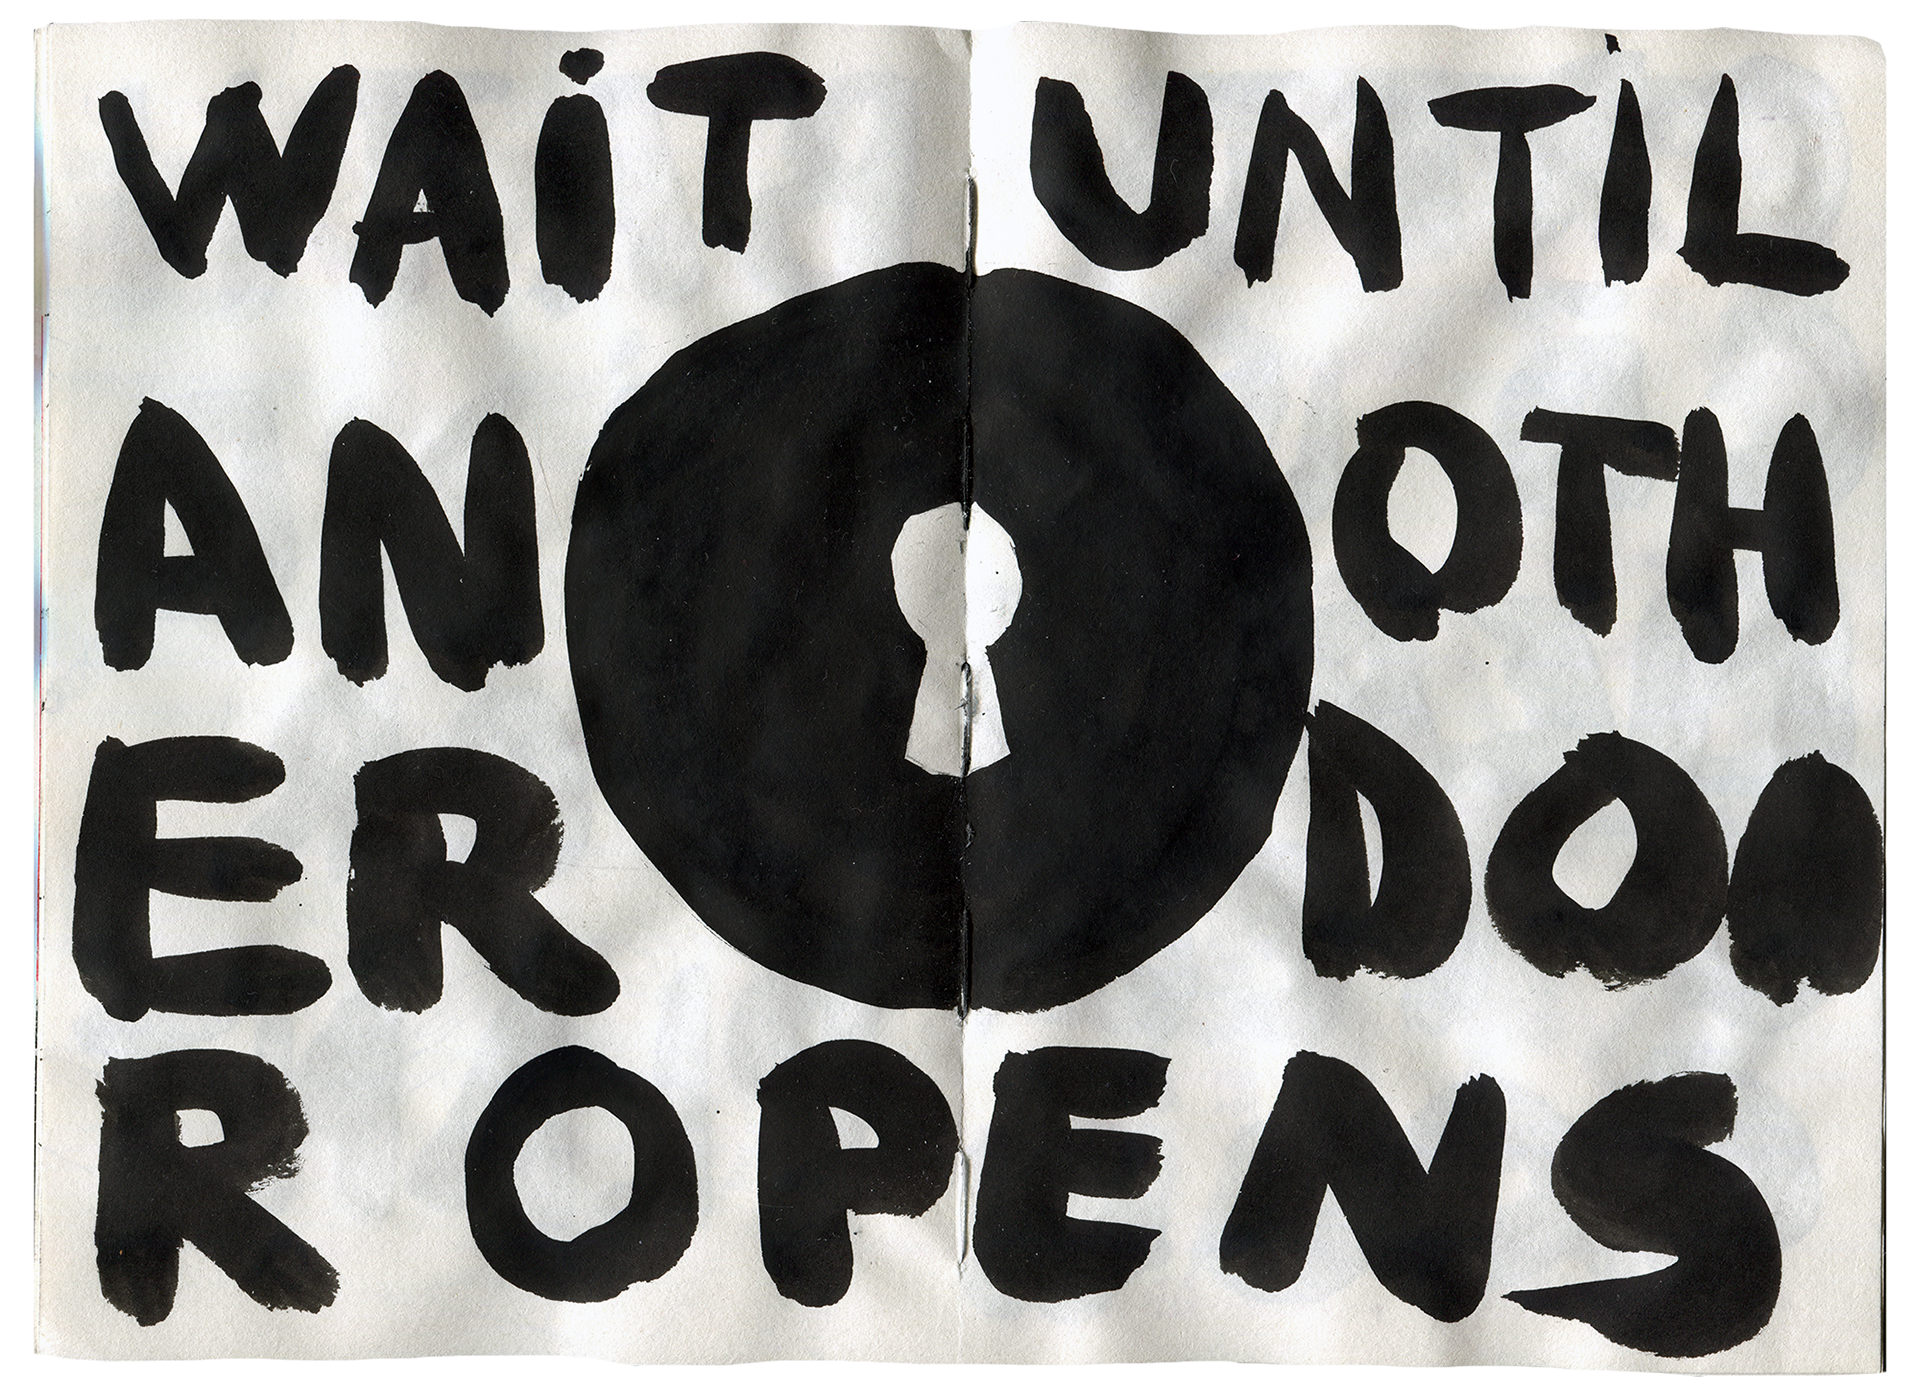 WAiT UNTiL
AN OTH
ER DOO
R OPENS